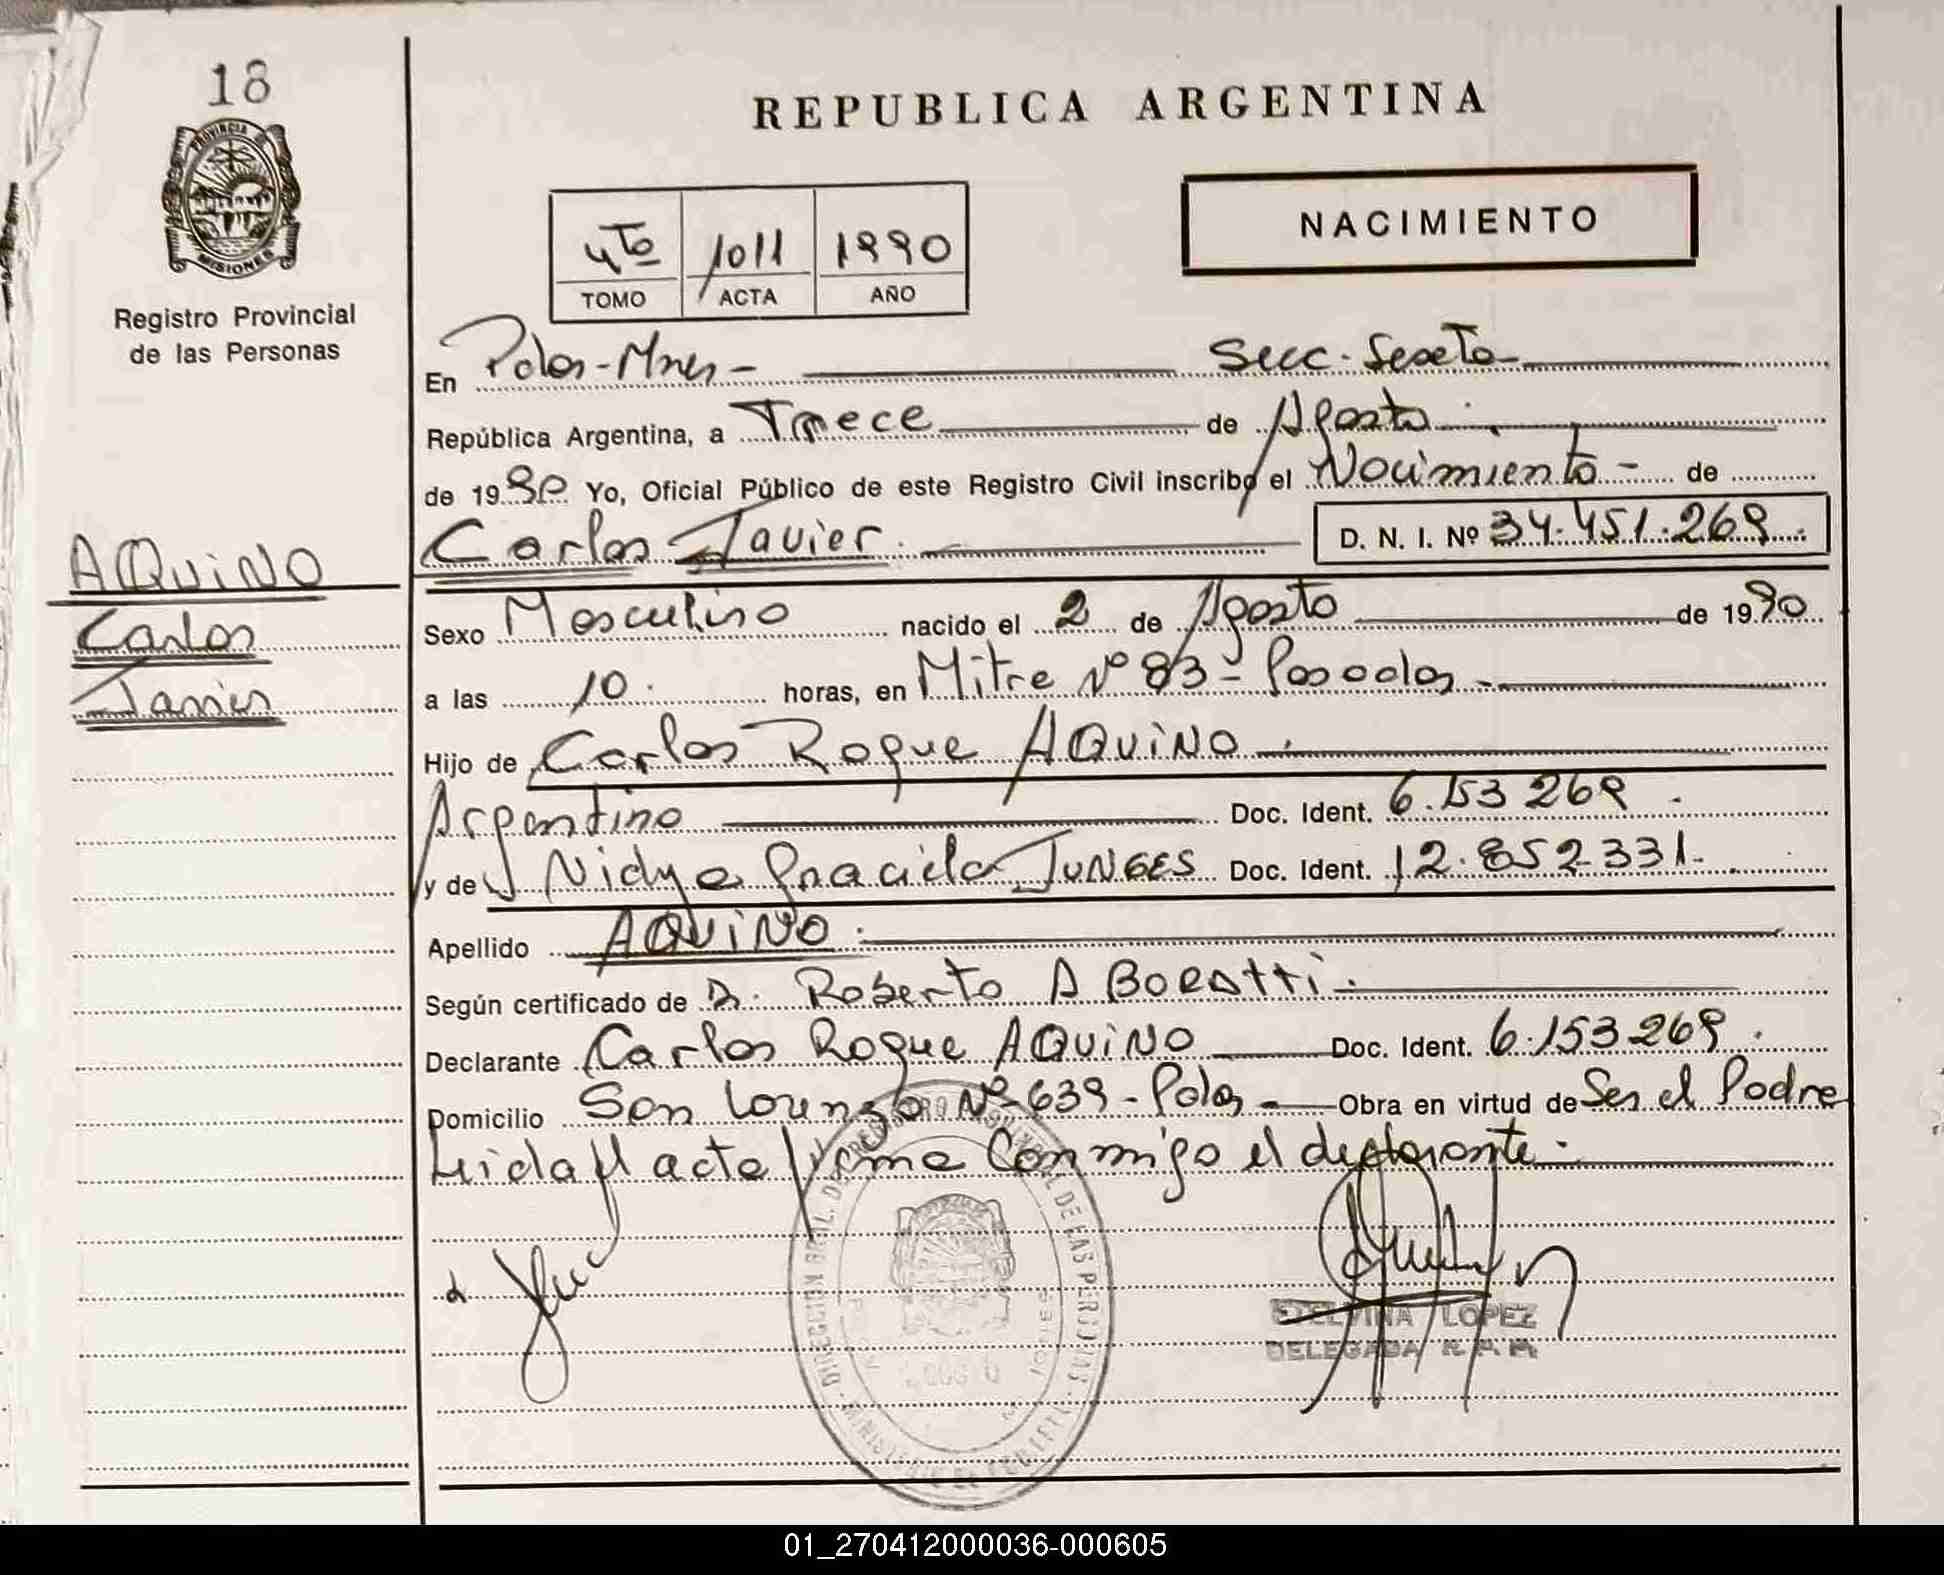 18
PROVINCIA
MISIONES
Registro Provincial
de las Personas
REPUBLICA ARGENTINA
NACIMIENTO
4to 1011 1990
TOMO ACTA AÑO
En Pdas-Mnes- Secc. Sexta
República Argentina, a Trece de Agosto
de 1990 Yo, Oficial Público de este Registro Civil inscribo el Nacimiento - de
Carlos Javier. D. N. I. Nº 34.451.269.
AQUiNO
Carlos
Javier
Sexo Masculino nacido el 2 de Agosto de 1990
a las 10. horas, en Mitre Nº 83 - Posadas -
Hijo de Carlos Roque AQUiNO.
Argentino Doc. Ident. 6.153269.
y de Nidya Graciela JUNGES Doc. Ident. 12.852331.
Apellido AQUiNO.
Según certificado de Dr. Roberto A
Declarante Carlos Roque AQUiNO Doc. Ident. 6.153269.
Domicilio San Lorenzo Nº 639 - Pdas - Obra en virtud de Ser el Padre
Leida el acta firma Conmigo el declarante.
EDELVINA LOPEZ
DELEGADA
01_270412000036-000605